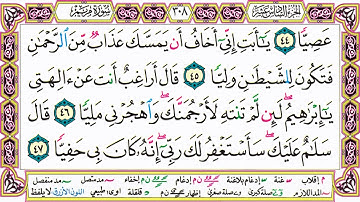 الجزء السادس عشر ٣٠٨ سورة مريم
عَصِيًّا ٤٤ يَٰٓأَبَتِ إِنِّىٓ أَخَافُ أَن يَمَسَّكَ عَذَابٌ مِّنَ ٱلرَّحْمَٰنِ
فَتَكُونَ لِلشَّيْطَٰنِ وَلِيًّا ٤٥ قَالَ أَرَاغِبٌ أَنتَ عَنْ ءَالِهَتِى
يَٰٓإِبْرَٰهِيمُ لَئِن لَّمْ تَنتَهِ لَأَرْجُمَنَّكَ وَٱهْجُرْنِى مَلِيًّا ٤٦ قَالَ
سَلَٰمٌ عَلَيْكَ سَأَسْتَغْفِرُ لَكَ رَبِّىٓ إِنَّهُۥ كَانَ بِى حَفِيًّا ٤٧